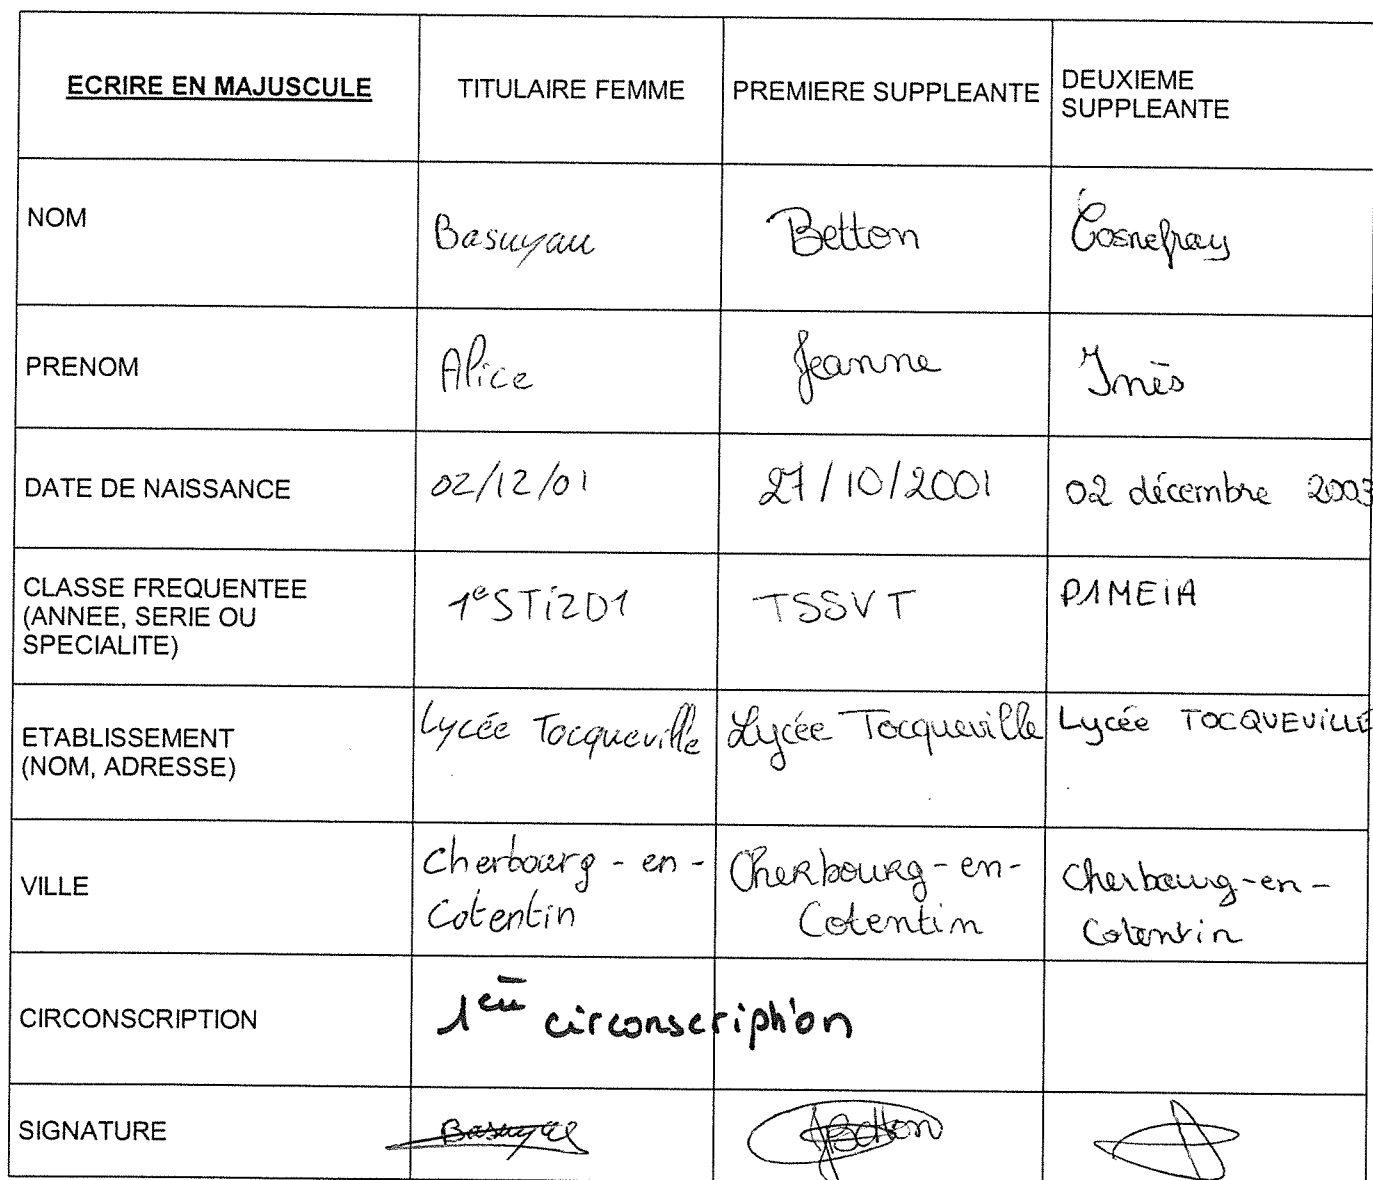 ECRIRE EN MAJUSCULE TITULAIRE FEMME PREMIERE SUPPLEANTE DEUXIEME SUPPLEANTE
NOM Basuyau Betton Cosnefroy
PRENOM Alice Jeanne Inès
DATE DE NAISSANCE 02/12/01 27/10/2001 02 décembre 2003
CLASSE FREQUENTEE
(ANNEE, SERIE OU
SPECIALITE) 1eSTi2D1 TSSVT P1MEiA
ETABLISSEMENT
(NOM, ADRESSE) Lycée Tocqueville Lycée Tocqueville Lycée TOCQUEViLLE
VILLE Cherbourg-en-
Cotentin Cherbourg-en-
Cotentin Cherbourg-en-
Cotentin
CIRCONSCRIPTION 1ère circonscription
SIGNATURE Basuyau JBetton